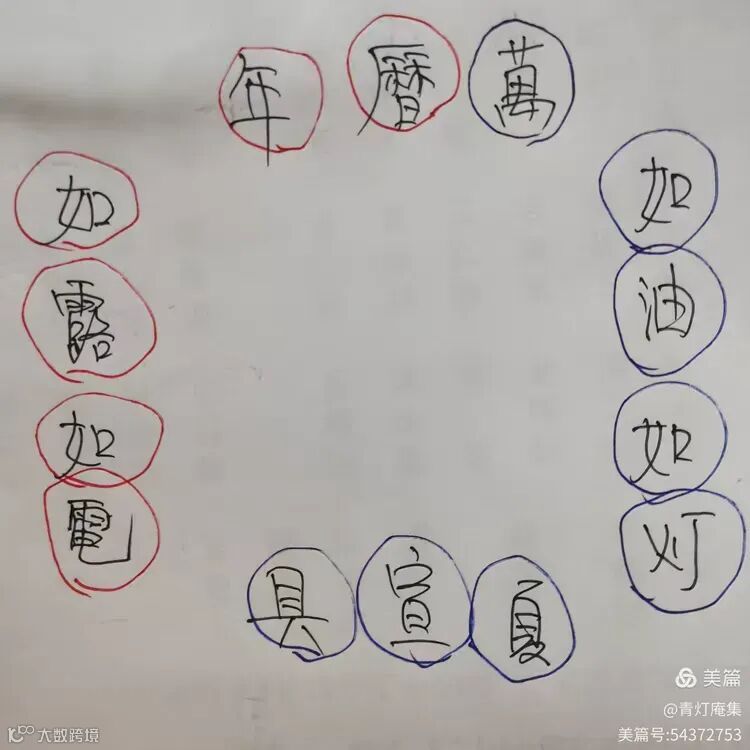 年曆萬
如油如灯
如露如電
具宣夏
美篇
@青灯庵集
美篇号:54372753
大数跨境